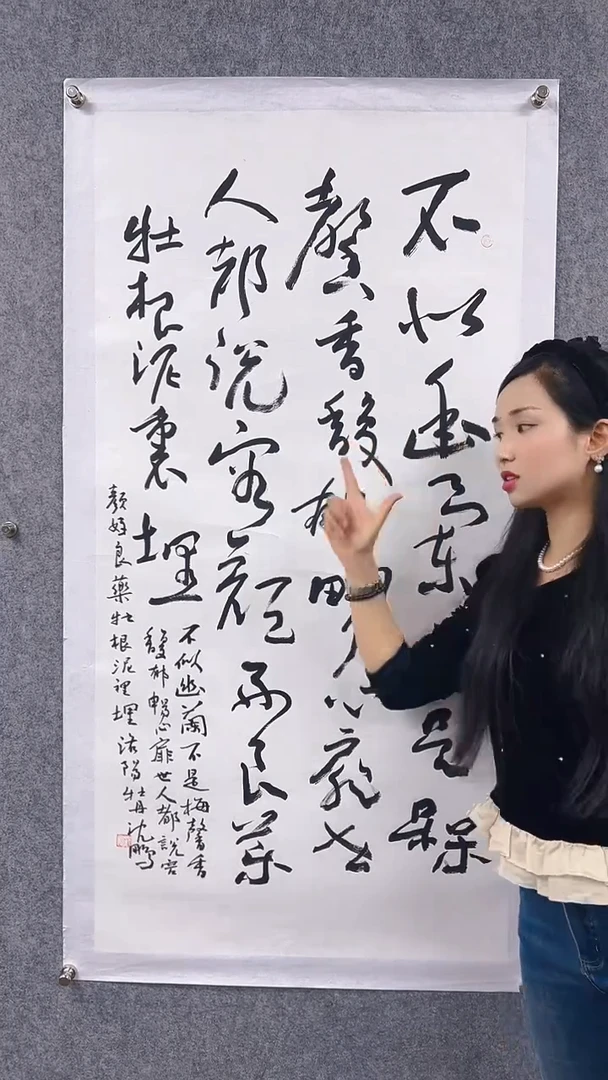 不似幽蘭是槑
馨香馥郁暢心扉世
人都说容颜好良药
牡根泥裏埋
不似幽蘭不是梅馨香
馥郁暢心扉世人都說容
顏好良藥牡根泥裡埋洛陽牡丹沈鵬